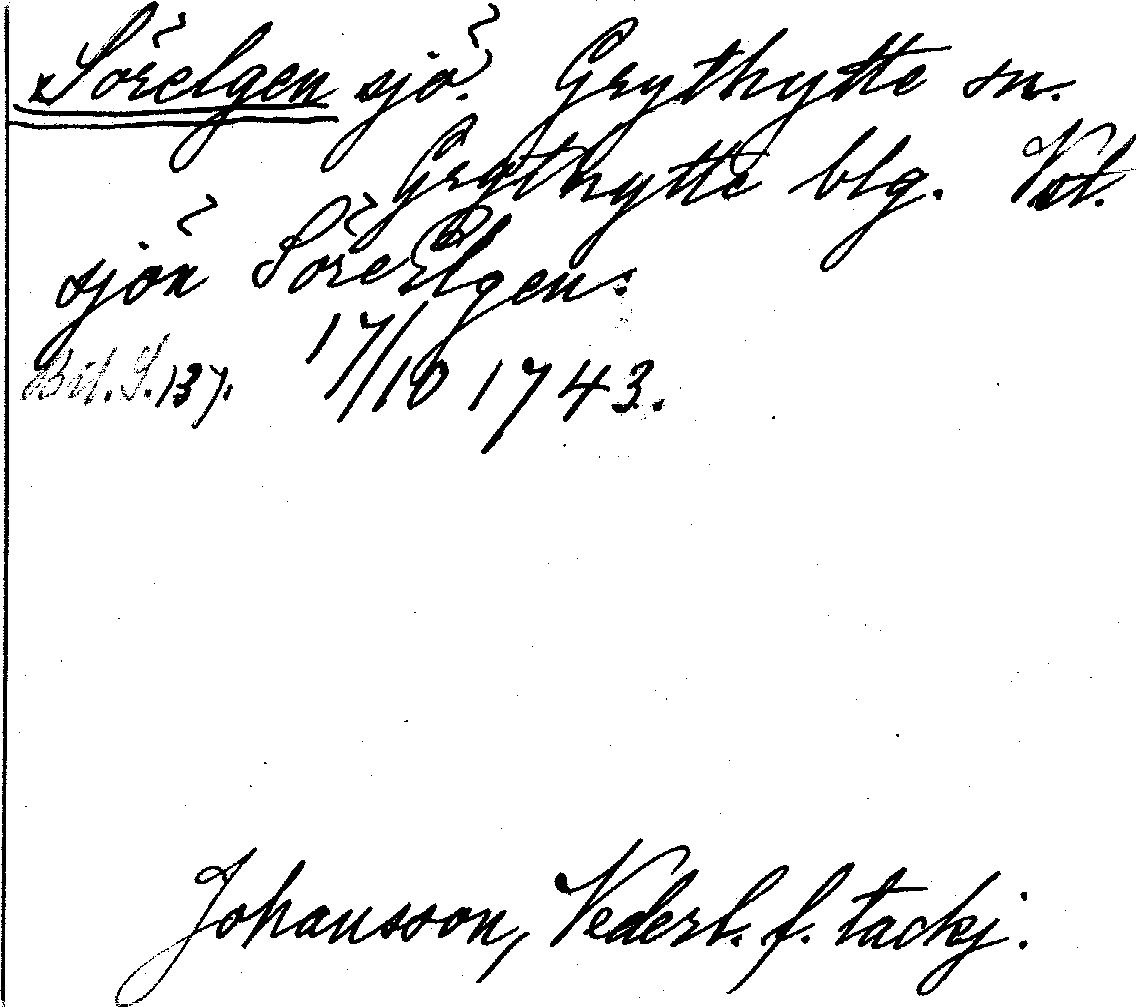 Sörelgen sjö. Grythytte sn.
Grythytte blg. Vstl.
sjön Sörelgen:
Bil. S. 137. 17/10 1743.
Johansson, Nederl. f. tackj.